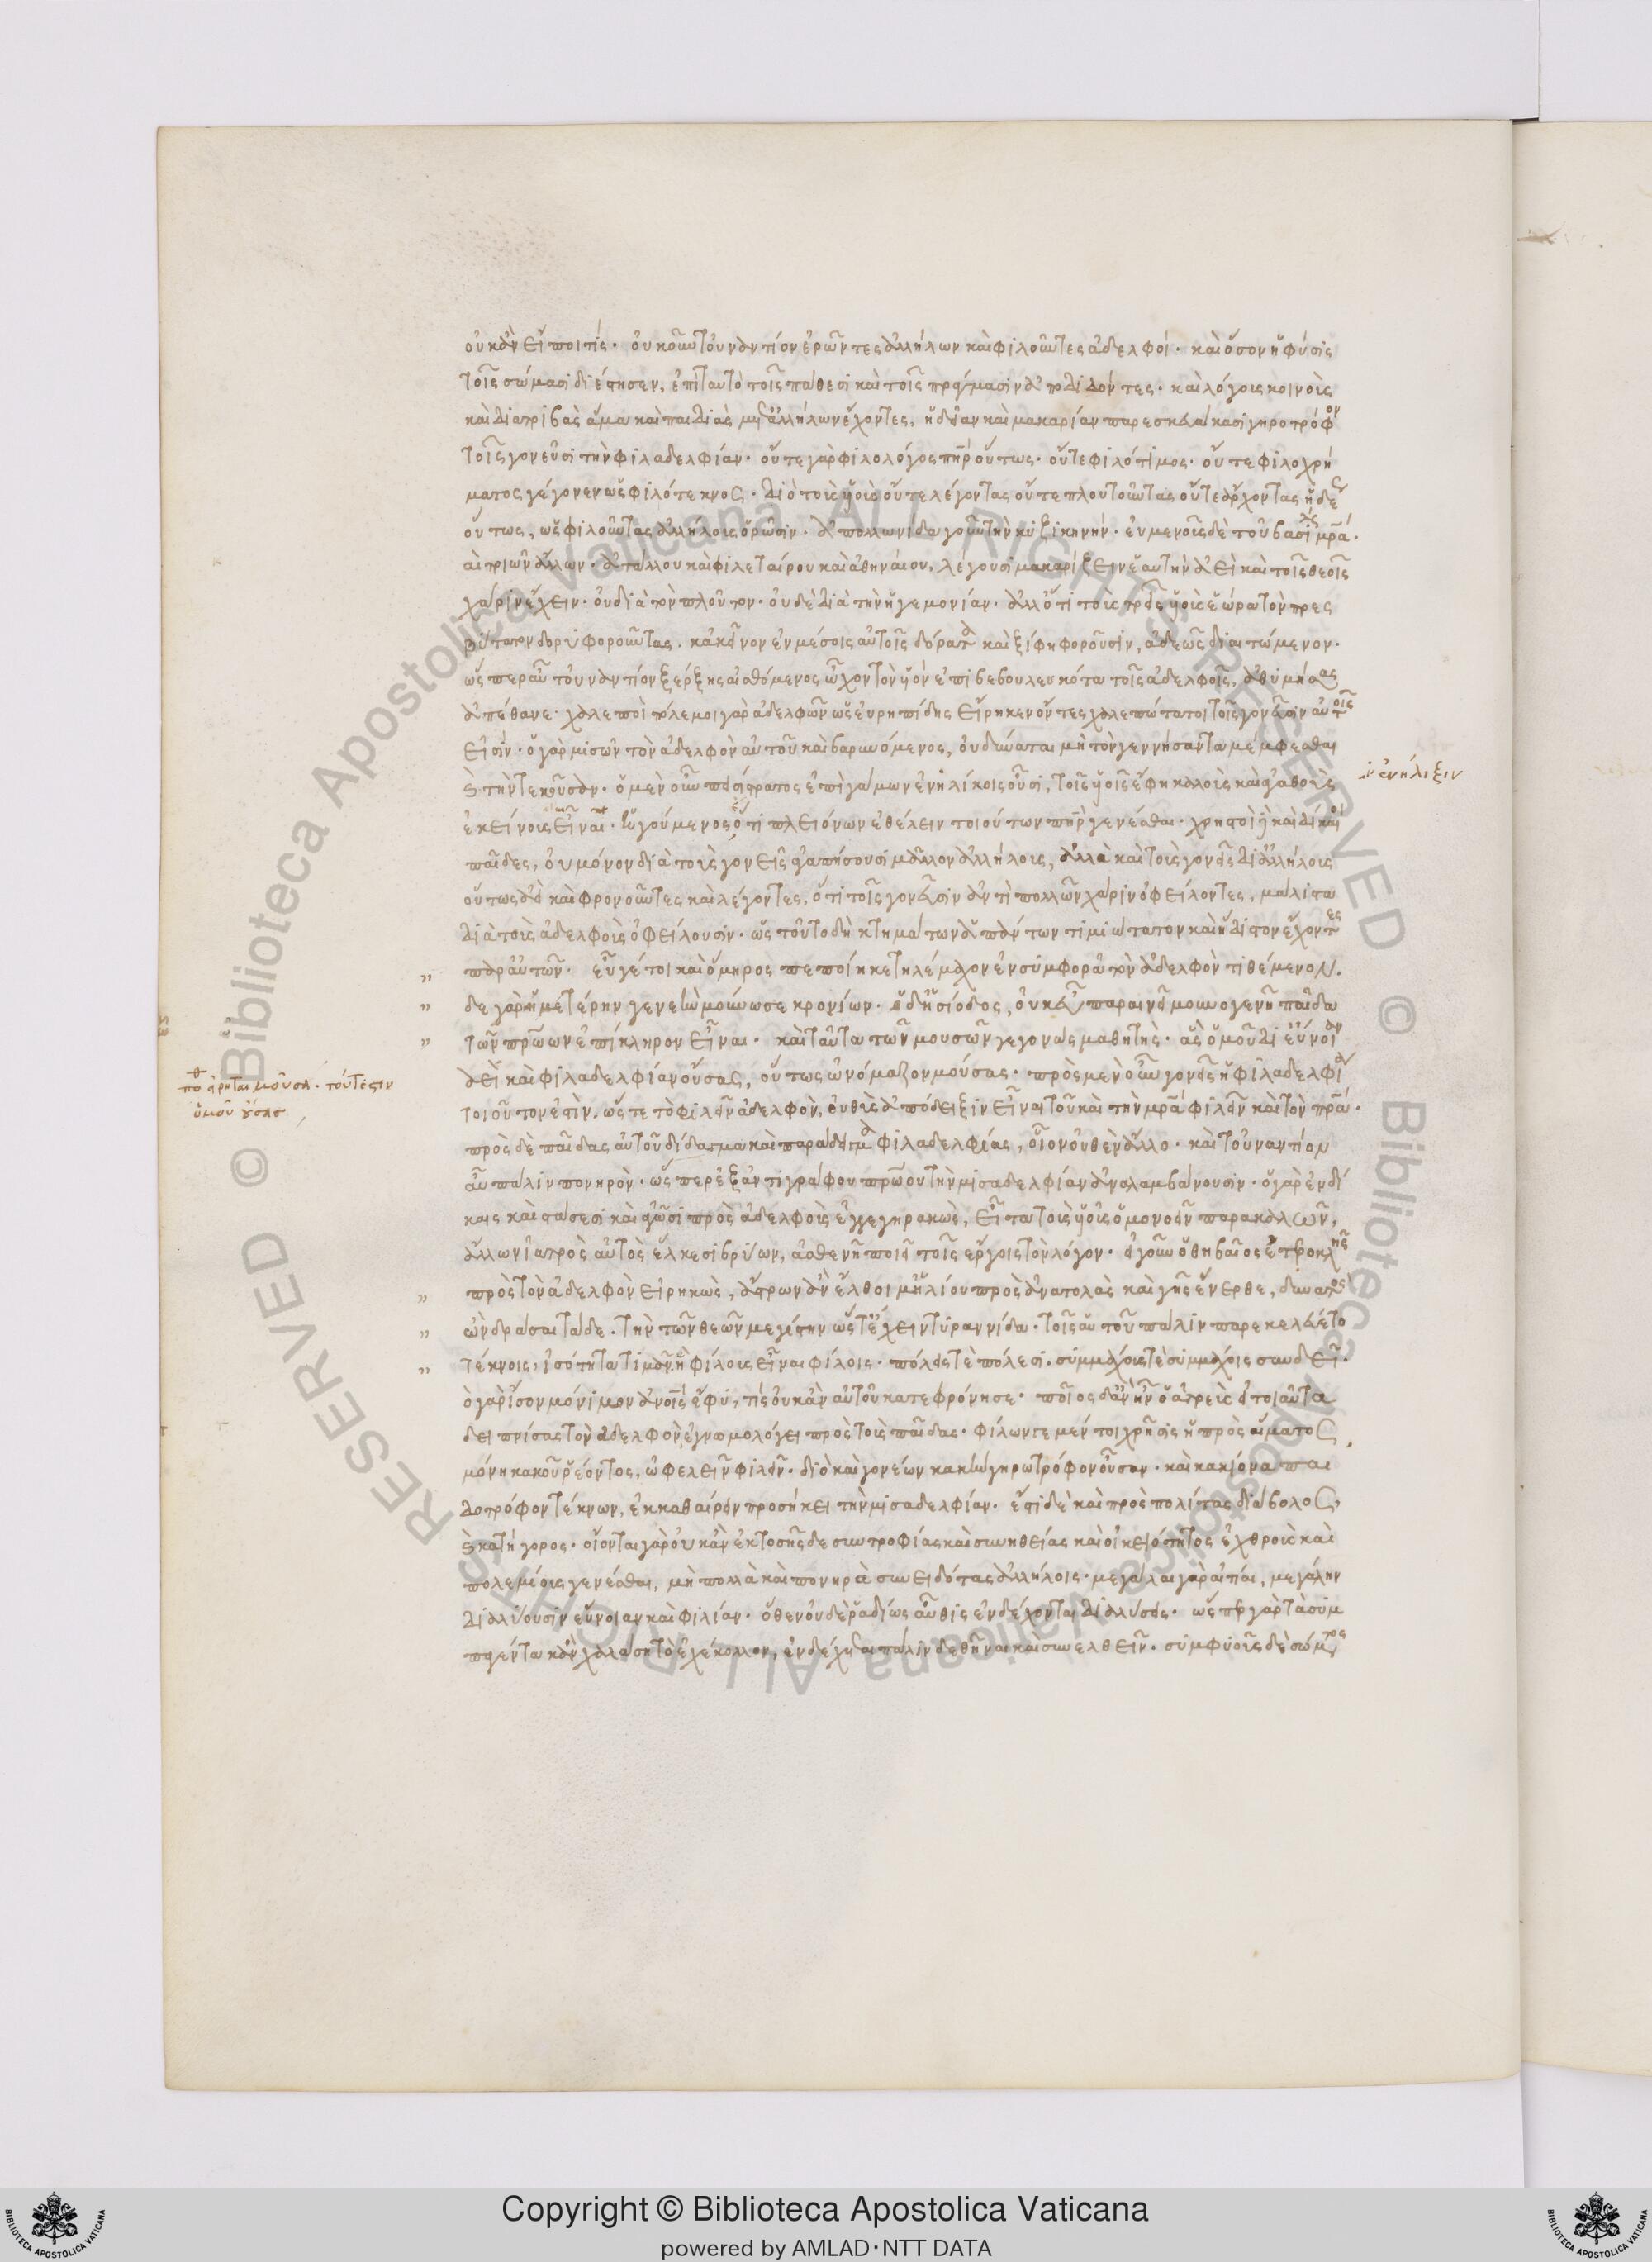 οὐκ ἂν εἴποι τίς· οὐκοῦν τοὐναντίον ἐρῶντες ἀλλήλων καὶ φιλοῦντες ἀδελφοί· καὶ ὅσον ἡ φύσις
τοῖς σώμασι διέστησεν, ἐπὶ ταυτὸ τοῖς πάθεσι καὶ τοῖς πράγμασιν ἀποδιδόντες· καὶ λόγους κοινοὺς
καὶ διατριβὰς ἅμα καὶ παιδιὰς μετ' ἀλλήλων ἔχοντες, ἡδεῖαν καὶ μακαρίαν παρεσκευάκασι γηροτρόφον
τοῖς γονεῦσι τὴν φιλαδελφίαν· οὔτε γὰρ φιλολόγος πὴρ οὕτως· οὔτε φιλότιμος· οὔτε φιλοχρή
ματος γέγονεν ὡς φιλότεκνος· διὸ τοὺς υἱοὺς οὔτε λέγοντας οὔτε πλουτοῦντας οὔτε ἄρχοντας ἡδέως
οὕτως, ὡς φιλοῦντας ἀλλήλους ὁρῶσιν· ἀπολλωνίδα γοῦν τὴν κυζικηνήν· εὐμενοῦς δὲ τοῦ βασιλέως μρα·
καὶ τριῶν ἄλλων· ἀττάλου καὶ φιλεταίρου καὶ ἀθηναίου, λέγουσι μακαρίζειν ἑαυτὴν ἀεὶ καὶ τοῖς θεοῖς
χάριν ἔχειν· οὐ διὰ τὸν πλοῦτον· οὐδὲ διὰ τὴν ἡγεμονίαν· ἀλλ' ὅτι τοὺς τρεῖς υἱοὺς ἑώρα τὸν πρεσ
βύτατον δορυφοροῦντας· κἀκεῖνον ἐν μέσοις αὐτοῖς δόρατα καὶ ξίφη φοροῦσιν, ἀδεῶς διαιτώμενον·
ὥσπερ αὖ τοὐναντίον ξέρξης αἰσθόμενος ὦχον τὸν υἱὸν ἐπιβεβουλευκότα τοῖς ἀδελφοῖς, ἀθυμήσας
ἀπέθανε· χαλεποὶ πόλεμοι γὰρ ἀδελφῶν ὡς εὐρηπίδης εἴρηκεν ὄντες χαλεπώτατοι τοῖς γονεῦσιν αὐτοῖς
εἰσίν· ὁ γὰρ μισῶν τὸν ἀδελφὸν αὐτοῦ καὶ βαρυνόμενος, οὐ δύναται μὴ τὸν γεννήσαντα μέμφεσθαι
καὶ τὴν τεκοῦσαν· ὁ μὲν οὖν πεισίστρατος ἐπιγαμῶν ἐνηλίκοις οὖσι, τοῖς υἱοῖς ἔφη καλοὺς καὶ ἀγαθοὺς
ἐκείνους εἶναι· ἡγούμενος ἔτι πλειόνων ἐθέλειν τοιούτων πὴρ γενέσθαι· χρηστοὶ δὲ καὶ δίκαιοι
παῖδες, οὐ μόνον διὰ τοὺς γονεῖς ἀγαπήσουσι μᾶλλον ἀλλήλους, ἀλλὰ καὶ τοὺς γονεῖς δι' ἀλλήλους
οὕτως ἀεὶ καὶ φρονοῦντες καὶ λέγοντες, ὅτι τοῖς γονεῦσιν ἀντὶ πολλῶν χάριν ὀφείλοντες, μάλιστα
διὰ τοὺς ἀδελφοὺς ὀφείλουσιν· ὡς τοῦτο δὴ κτημάτων ἁπάντων τιμιώτατον καὶ ἥδιστον ἔχοντες
παρ' αὐτῶν· εὖ γέ τοι καὶ ὅμηρος πεποίηκε τηλέμαχον ἐν συμφορᾷ τὸν ἀδελφὸν τιθέμενον·
δε γὰρ ἡμετέρην γενεὴν μούνωσε κρονίων· ὁ δ' ἡσίοδος, οὐκ εὖ παραινεῖ μουνογενῆ παῖδα
τῶν πρώων ἐπίκληρον εἶναι· καὶ ταῦτα τῶν μουσῶν γεγονὼς μαθητής· ἃς ὁμοῦ δι' εὔνοιαν
ἀεὶ καὶ φιλαδελφίαν οὔσας, οὕτως ὠνόμαζον μούσας· πρὸς μὲν οὖν γονεῖς ἡ φιλαδελφία
τοιοῦτον ἐστίν· ὥστε τὸ φιλεῖν ἀδελφὸν, εὐθὺς ἀπόδειξιν εἶναι τοῦ καὶ τὴν μρα φιλεῖν καὶ τὸν πρα·
πρὸς δὲ παῖδας αὐτοῦ δίδαγμα καὶ παράδειγμα φιλαδελφίας, οἷον οὐθὲν ἄλλο· καὶ τοὐναντίον
αὖ πάλιν πονηρὸν· ὥσπερ ἐξ ἀντιγράφου πρώου τὴν μισαδελφίαν ἀναλαμβάνουσιν· ὁ γὰρ ἐν δί
καις καὶ στάσεσι καὶ ἀγῶσι πρὸς ἀδελφοὺς ἐγγεγηρακὼς, εἶτα τοὺς υἱοὺς ὁμονοεῖν παρακαλῶν,
ἄλλων ἰατρὸς αὐτὸς ἕλκεσι βρύων, ἀσθενῆ ποιεῖ τοῖς ἔργοις τὸν λόγον· εἰ γοῦν ὁ θηβαῖος ἐτεοκλῆς
πρὸς τὸν ἀδελφὸν εἰρηκὼς, ἄστρων ἂν ἔλθοιμ' ἡλίου πρὸς ἀνατολὰς καὶ γῆς ἔνερθε, δυνατὸς
ὢν δρᾶσαι τάδε· τὴν τῶν θεῶν μεγίστην ὥστ' ἔχειν τυραννίδα· τοῖς αὑτοῦ πάλιν παρεκελεύετο
τέκνοις, ἰσότητα τιμᾶν· ἣ φίλους εἶναι φίλοις· πόλεις τὲ πόλεσι· συμμάχους τὲ συμμάχοις συνδεῖ·
ὁ γὰρ ἴσον μόνιμον ἀνοις ἔφυ, τίς οὐκ ἂν αὐτοῦ κατεφρόνησε· ποῖος δ' ἂν ἦν ὁ ἀτρεὺς εἰ τοιαῦτα
δειπνίσας τὸν ἀδελφὸν, ἐγνωμολόγει πρὸς τοὺς παῖδας· φίλων γε μέν τοι χρῆσις ἡ πρὸς αἵματος,
μόνη κακοῦ ῥέοντος, ὠφελεῖν φιλεῖ· διὸ καὶ γονέων κακὴν γηρωτρόφον οὖσαν· καὶ κακίονα παι
δοτρόφον τέκνων, ἐκκαθαίρειν προσήκει τὴν μισαδελφίαν· ἔστι δὲ καὶ πρὸς πολίτας διάβολος,
καὶ κατήγορος· οἴονται γὰρ οὐκ ἂν ἐκ τοσῆσδε συντροφίας καὶ συνηθείας καὶ οἰκειότητος ἐχθροὺς καὶ
πολεμίους γενέσθαι, μὴ πολλὰ καὶ πονηρὰ συνειδότας ἀλλήλοις· μεγάλαι γὰρ αἰτίαι, μεγάλην
διαλύουσιν εὔνοιαν καὶ φιλίαν· ὅθεν οὐδὲ ῥαδίως αὖθις ἐνδέχονται διαλύσεις· ὥσπερ γὰρ τὰ συμ
παγέντα κἂν χαλάσῃ τὸ ἐχέκολλον, ἐνδέχεται πάλιν δεθῆναι καὶ συνελθεῖν· συμφυοῦς δὲ σώματος
ἐνήλιξιν
εἴρηται μοῦσα· τουτέστιν
ὁμοῦ οὖσα
Copyright © Biblioteca Apostolica Vaticana
powered by AMLAD·NTT DATA